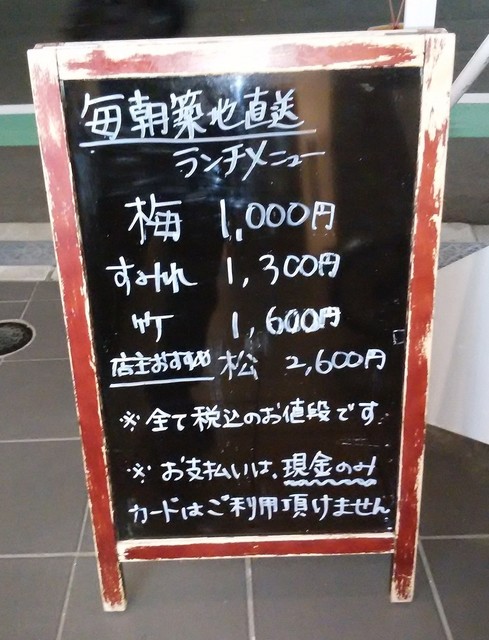 毎朝築地直送
ランチメニュー
梅 1,000円
すみれ 1,300円
竹 1,600円
店主おすすめ 松 2,600円
※全て税込のお値段です
※お支払いは、現金のみ
カードはご利用頂けません